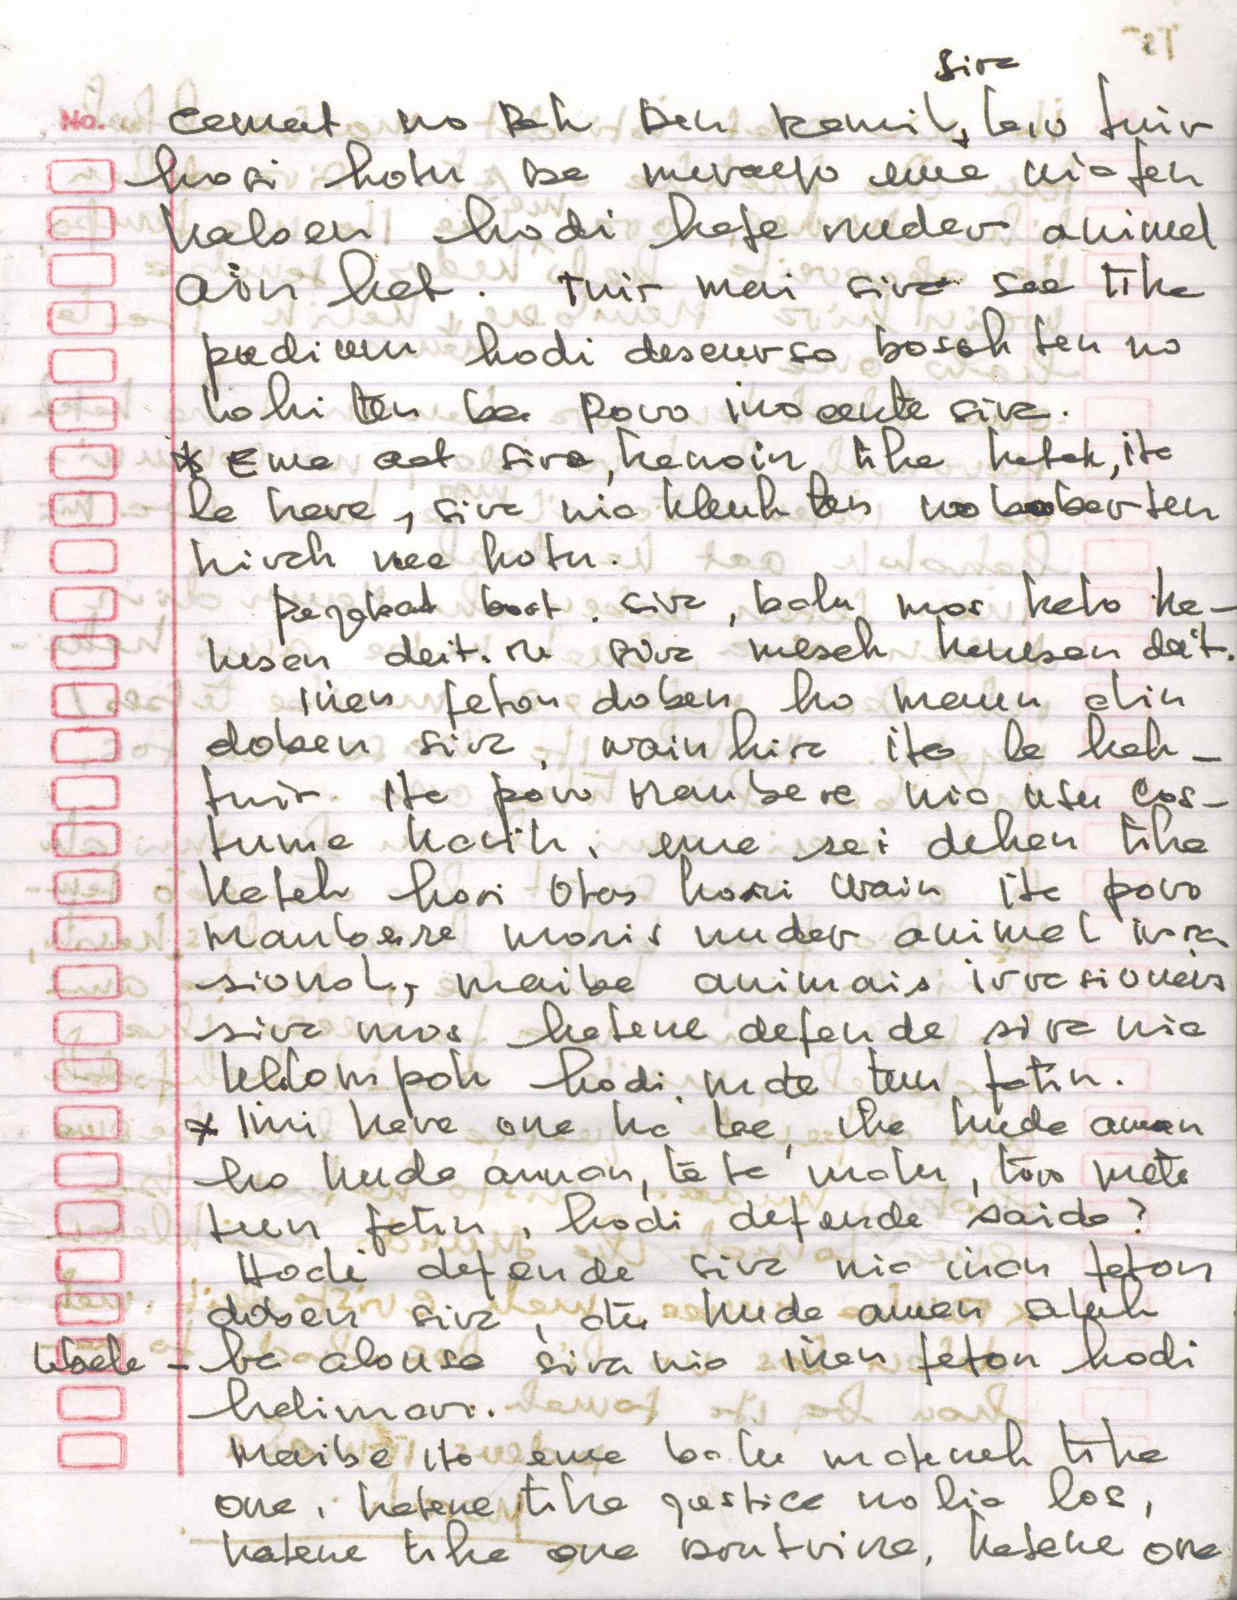 sira
No. camat no Pak Den Ramil, laro tuir
hosi hotu ba muraefo ema nia fen
halsen hodi hafe nudar animal
ain hat. Tuir mai sira sae tiha
podium hodi descurso bosok ten no
lohi ten ba Povo inocente sira.
* Ema aat sira, hanoin tiha katak, ita
la hare, sira nia kleuk ten no babar ten
hirak nee hotu.
Pejabat boot sira, balu mos halo ha-
nesan deit. ne sira mesak hanesan deit.
Inan feton doben ho maun alin
doben sira, wainhira ita la hak-
tuir ita povo Maubere nia usu cos-
tume karik, ema sei dehan tiha
katak hori Otas hori wain ita povo
Maubere moris nudar animal irra
sional, maibe animais irrasionais
sira mos hatene defende sira nia
klompok hodi mate tun fatin.
* Imi hare ona ka lae, iha kuda aman
ho kuda aman, tata malu, too mate
tun fatin, hodi defende saida?
Hodi defende sira nia inan feton
doben sira, atu kuda aman seluk
labele - ba alousa sira nia inan feton hodi
halimar.
Maibe ita ema balu matenek tiha
ona, hatene tiha justica no lia los,
hatene tiha ona doutrina, hatene ona